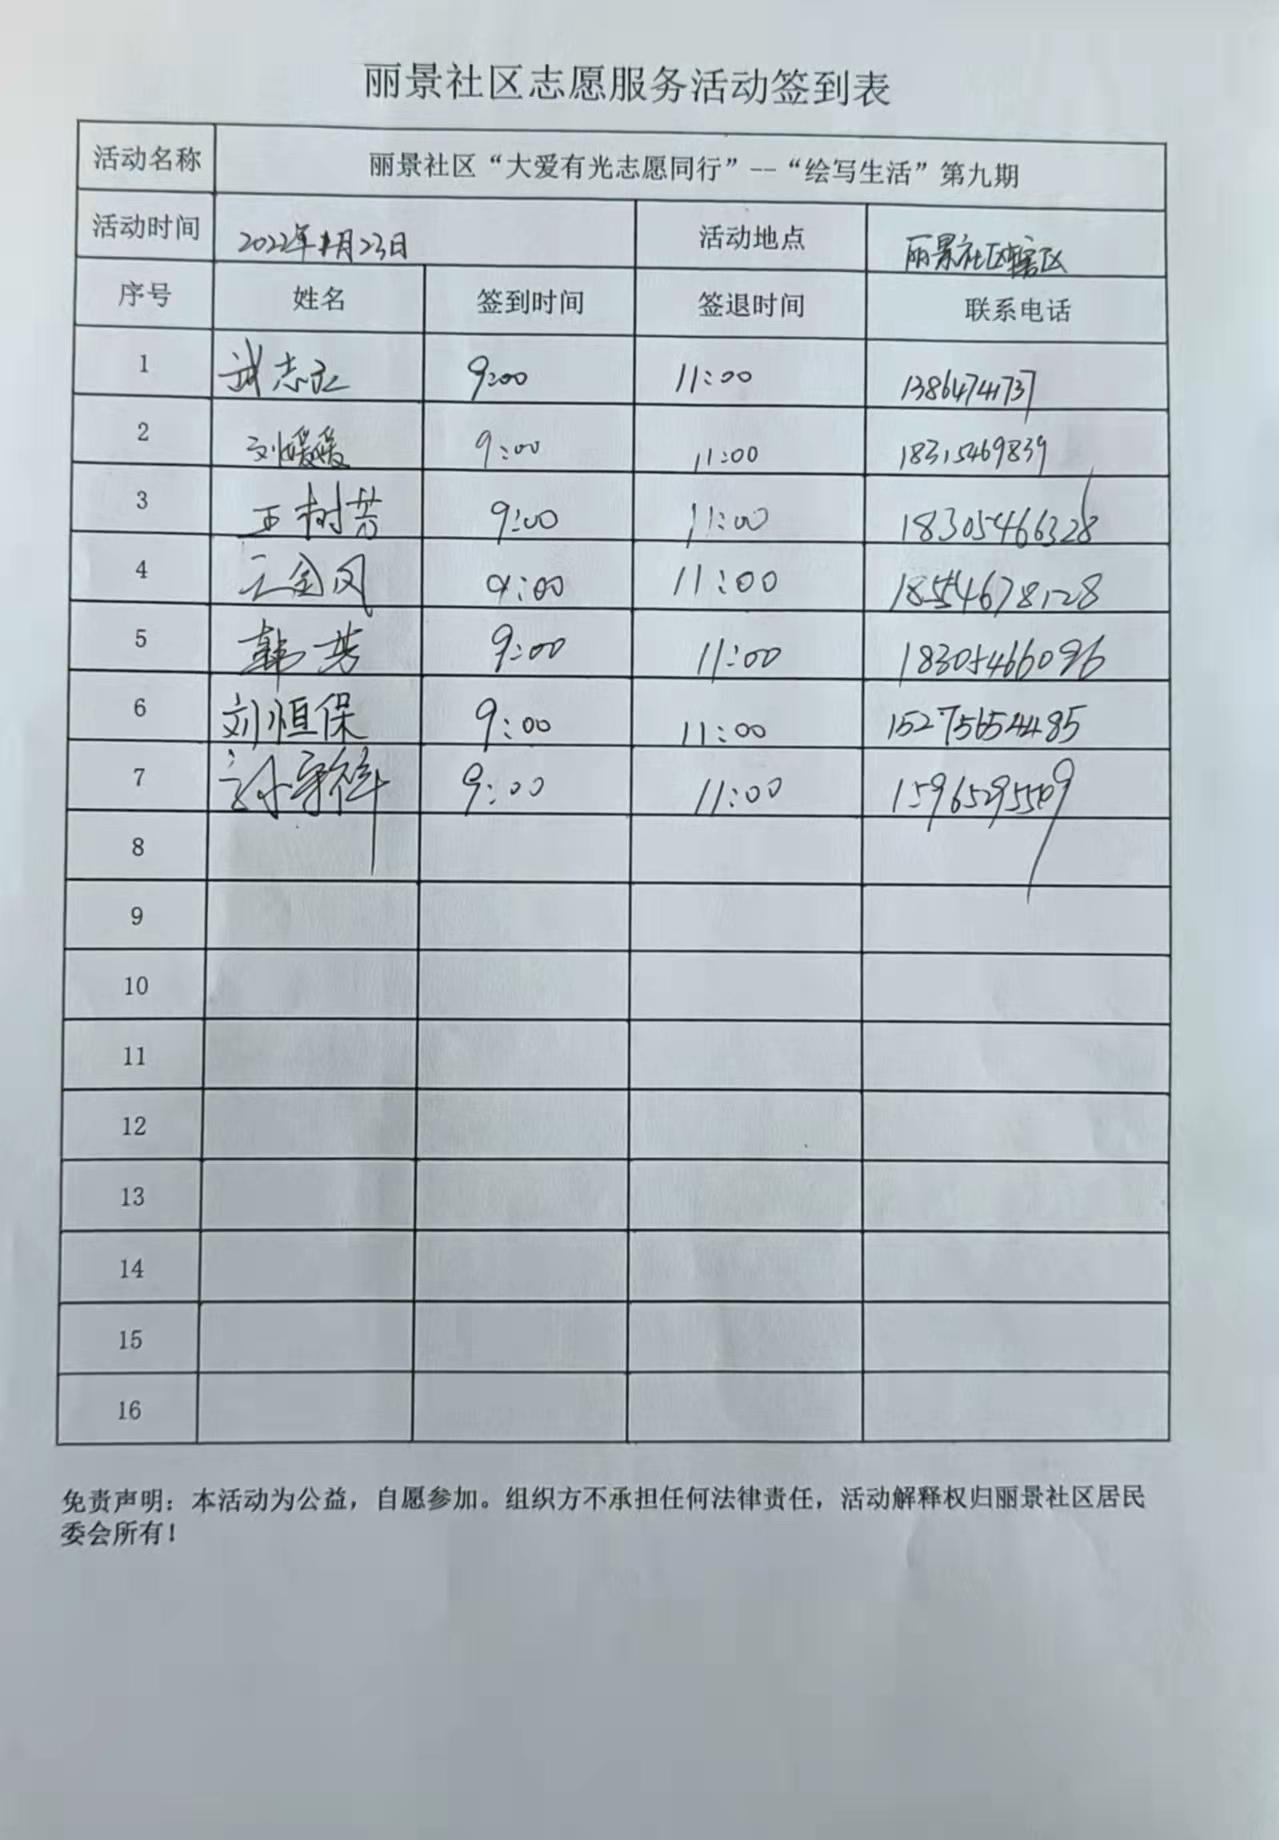 丽景社区志愿服务活动签到表
活动名称 丽景社区“大爱有光志愿同行”--“绘写生活”第九期
活动时间 2022年月23日 活动地点 丽景社区辖区
序号 姓名 签到时间 签退时间 联系电话
1 武志 9:00 11:00 13864741737
2 刘媛媛 9:00 11:00 18315469839
3 王树芳 9:00 11:00 18305466328
4 王金风 9:00 11:00 18554678128
5 韩芳 9:00 11:00 18305466096
6 刘恒保 9:00 11:00 15275654485
7 孙守祥 9:00 11:00 15965295509
8
9
10
11
12
13
14
15
16
免责声明：本活动为公益，自愿参加。组织方不承担任何法律责任，活动解释权归丽景社区居民
委会所有！